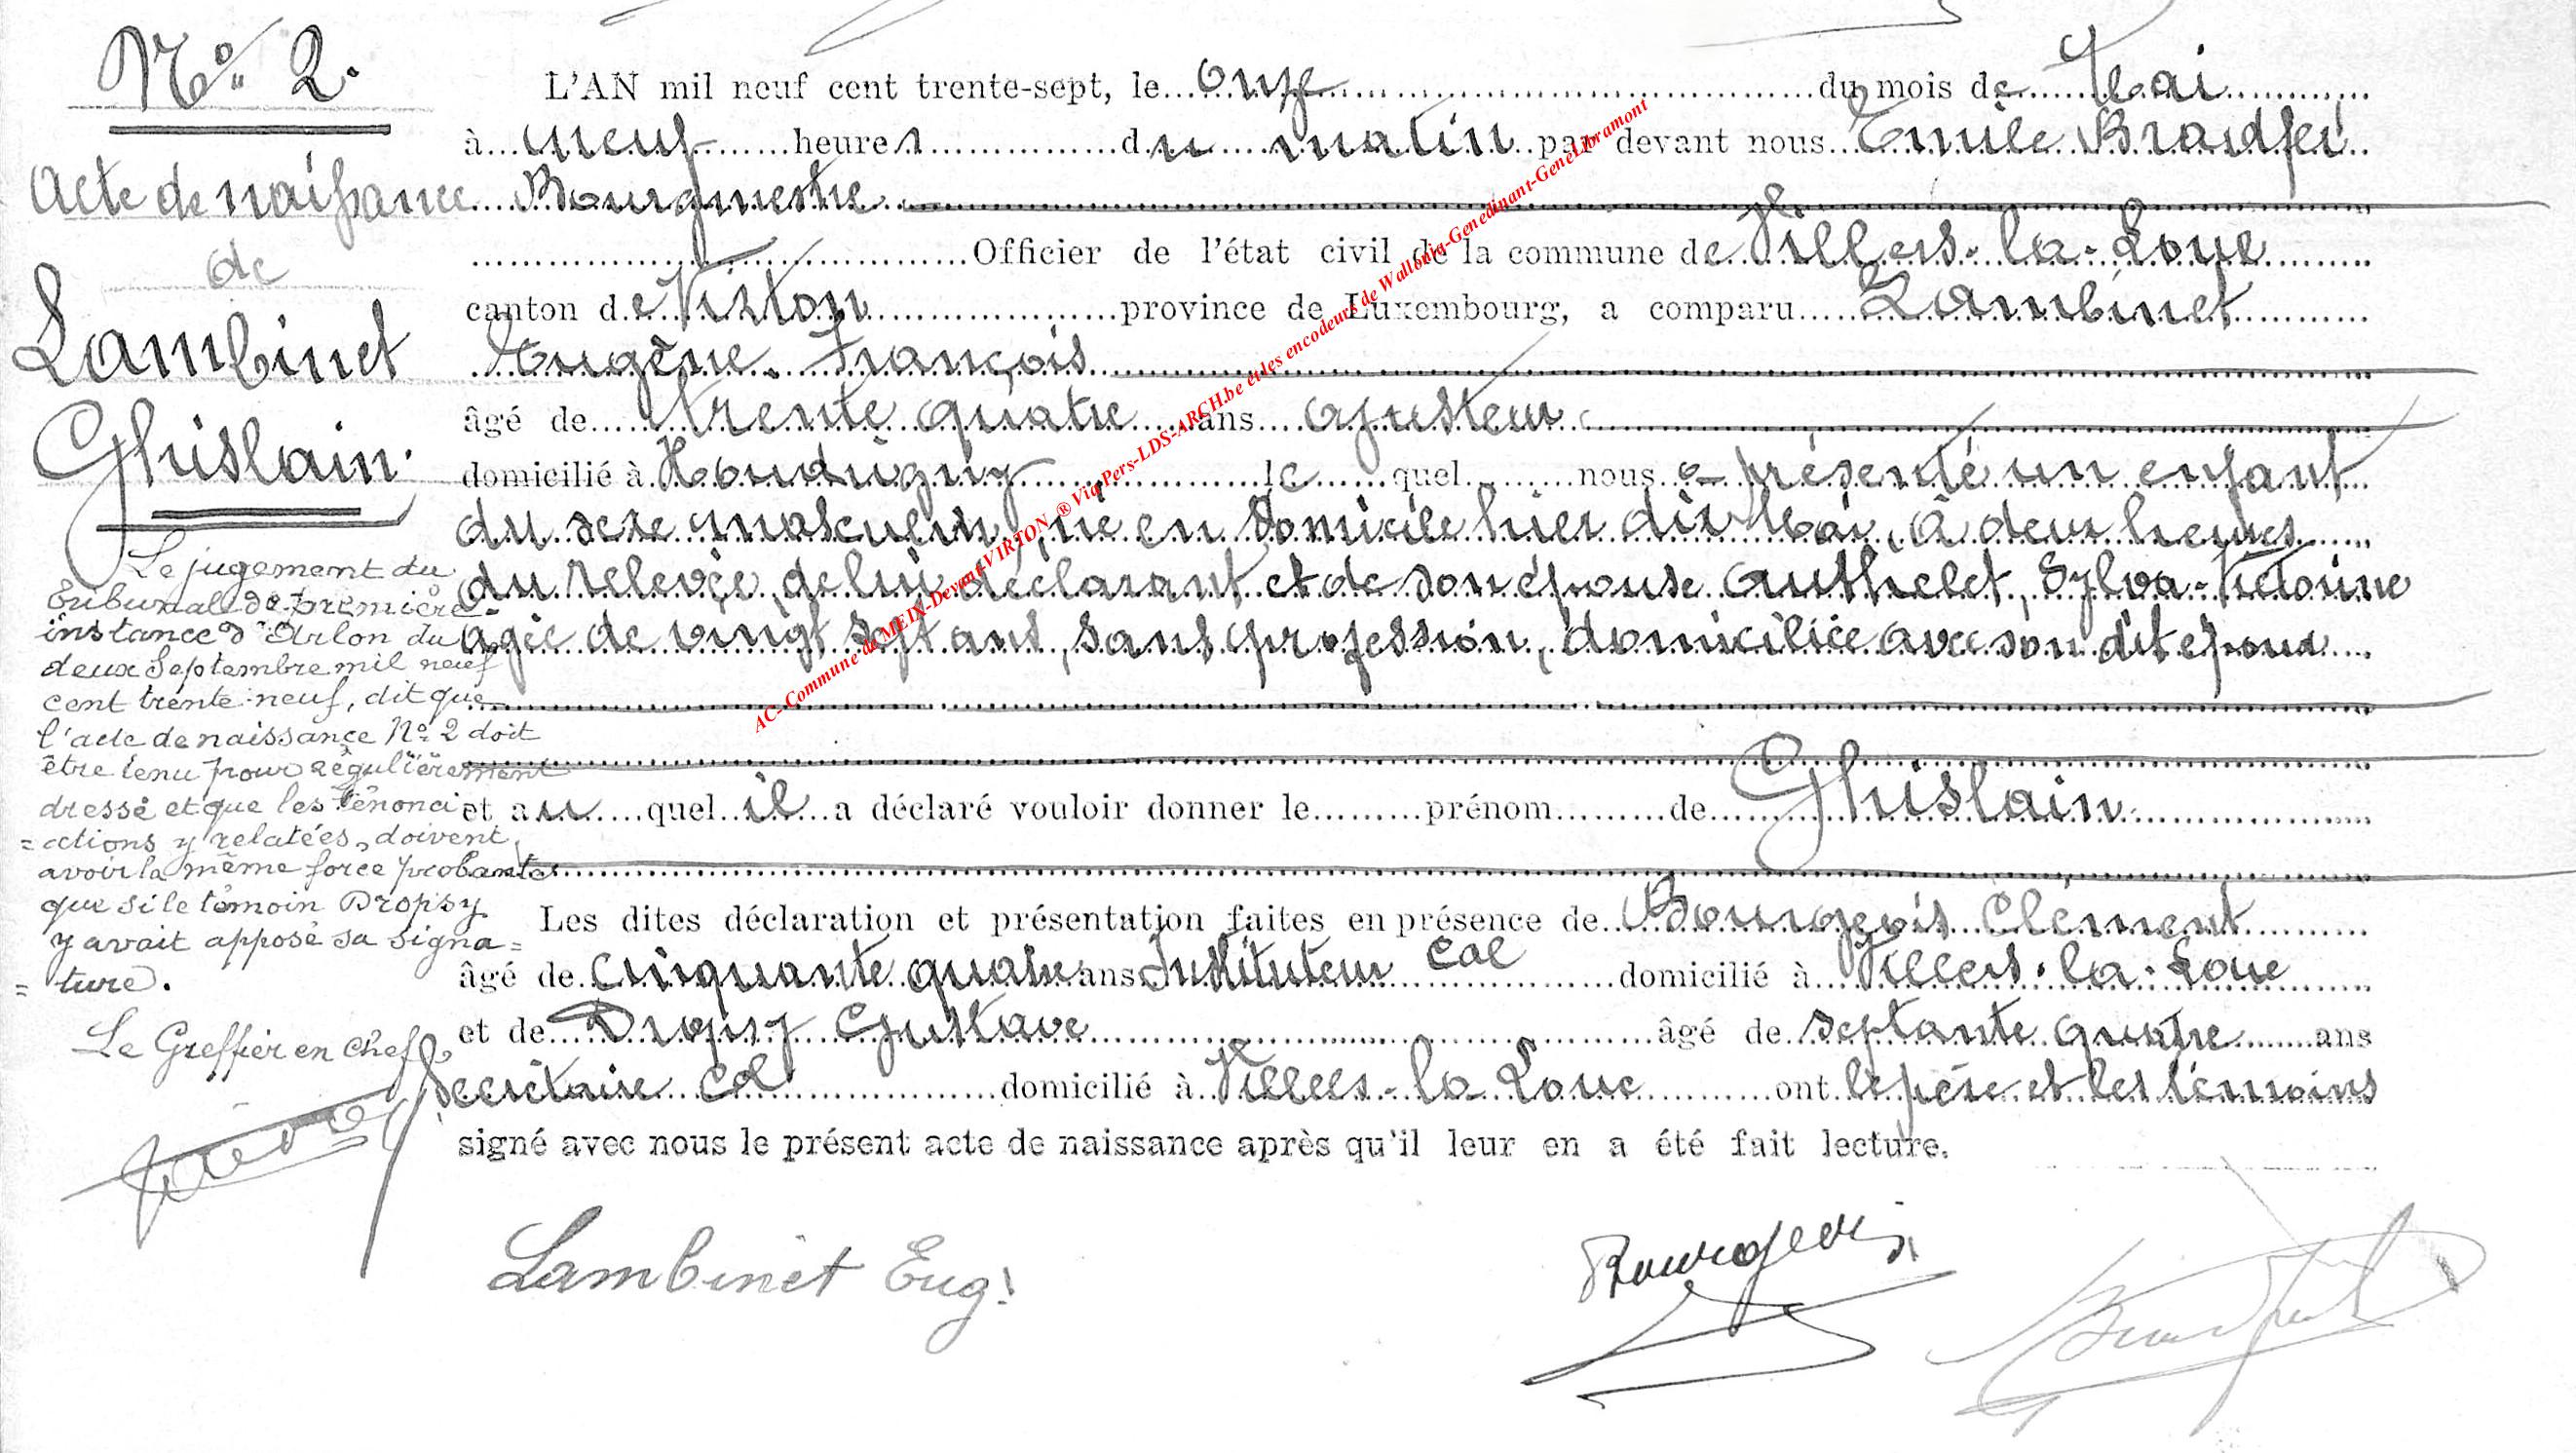 No 2.
Acte de naissance
de
Lambinet
Ghislain.
Le jugement du
tribunal de première
instance d'Arlon du
deux Septembre mil neuf
cent trente-neuf, dit que
l'acte de naissance No 2 doit
être tenu pour régulièrement
dressé et que les énonci
= ations y relatées, doivent
avoir la même force probante
que si le témoin Dropsy
y avait apposé sa signa =
= ture.
Le Greffier en chef,
L'AN mil neuf cent trente-sept, le onze du mois de Mai
à neuf heures du matin par devant nous Emile Braidfer
Bourgmestre
Officier de l'état civil de la commune de Villers-la-Loue
canton de Virton province de Luxembourg, a comparu Lambinet
Eugène François
âgé de trente quatre ans ajusteur
domicilié à Houdrigny lequel nous a présenté un enfant
du sexe masculin, né en domicile hier dix Mai, à deux heures
du relevée, de lui déclarant et de son épouse Authelet, Sylva-Victorine
agée de vingt sept ans, sans profession, domiciliée avec son dit époux
et au quel il a déclaré vouloir donner le prénom de Ghislain
Les dites déclaration et présentation faites en présence de Bourgeois Clément
âgé de cinquante quatre ans Instituteur cal domicilié à Villers-la-Loue
et de Dropsy Gustave âgé de septante quatre ans
Secrétaire cal domicilié à Villers-la Loue ont le père et les témoins
signé avec nous le présent acte de naissance après qu'il leur en a été fait lecture.
Lambinet Eug.
Bourgeois
AC-Commune de MEIX-Devant-VIRTON ® Via Pers-LDS-ARCH.be et les encodeurs de Wallonia-Genedinant-GeneLibramont